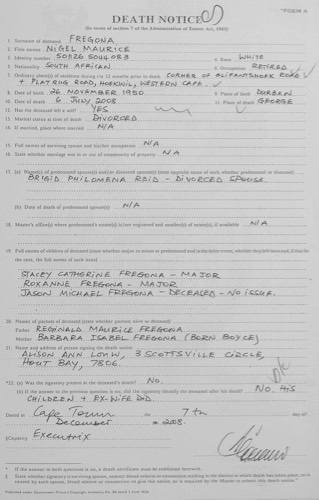 "FORM A
DEATH NOTICE
(In terms of section 7 of the Administration of Estates Act, 1965)
1. Surname of deceased FREGONA
2. First names NIGEL MAURICE
3. Identity number 4. Race WHITE
5. Nationality SOUTH AFRICAN 6. Occupation RETIRED
7. Ordinary place(s) of residence during the 12 months prior to death CORNER OF OLIFANTSHOEK ROAD
+ ROAD, HOEKWIL, WESTERN CAPE.
8. Date of birth 26 NOVEMBER 1950 9. Place of birth DURBAN
10. Date of death 6 JULY 2008 11. Place of death GEORGE
12. Has the deceased left a will YES
13. Marital status at time of death DIVORCED
14. If married, place where married N/A
15. Full names of surviving spouse and his/her occupation N/A
16. State whether marriage was in or out of community of property N/A
17. (a) Name(s) of predeceased spouse(s) and/or divorced spouse(s) (state opposite name of each whether predeceased or divorced)
BRIGID PHILOMENA REID - DIVORCED SPOUSE.
(b) Date of death of predeceased spouse(s) N/A
18. Master's office(s) where predeceased's estate(s) is/are registered and number(s) of estate(s), if available N/A
19. Full names of children of deceased (state whether major or minor or predeceased and in the latter event, whether they left issue and, if that be
the case, the full names of such issue)
STACEY CATHERINE FREGONA - MAJOR
ROXANNE FREGONA - MAJOR
JASON MICHAEL FREGONA - DECEASED - NO ISSUE.
20. Names of parents of deceased (state whether parents alive or deceased)
Father REGINALD MAURICE FREGONA
Mother BARBARA ISABEL FREGONA (BORN BOYCE)
21. Name and address of person signing the death notice
ALISON ANN LOUW, 3 SCOTTSVILLE CIRCLE,
HOUT BAY, 7806.
*22. (a) Was the signatory present at the deceased's death? NO.
(b) If the answer to the previous question is no, did the signatory identify the deceased after his death? NO. HIS
CHILDREN + EX-WIFE DID.
Dated at Cape Town the 7th day of
December 2008.
§Capacity Executrix
* If the answer to each question is no, a death certificate must be furnished herewith.